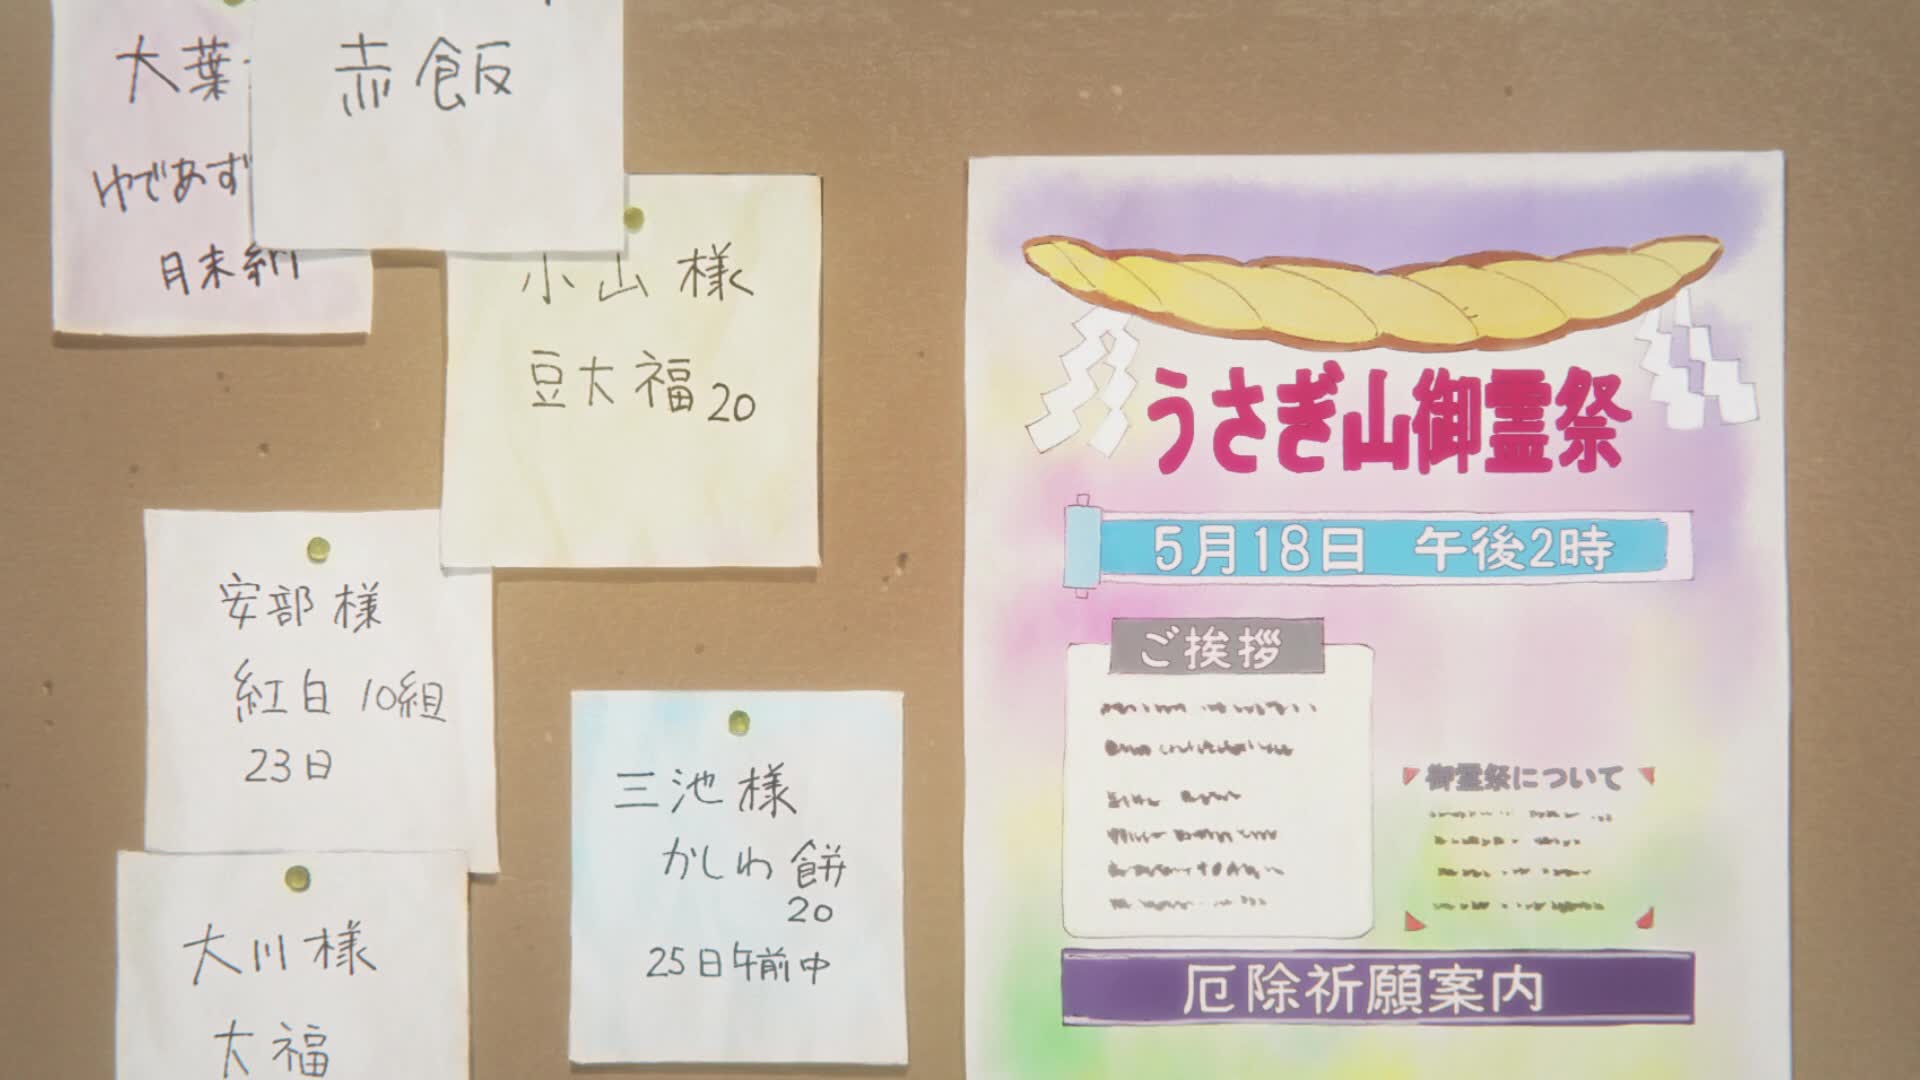 大葉
ゆであず
月末納
赤飯
小山様
豆大福 20
安部様
紅白 10組
23日
大川様
大福
三池様
かしわ餅
20
25日午前中
うさぎ山御霊祭
5月18日 午後2時
ご挨拶
御霊祭について
厄除祈願案内